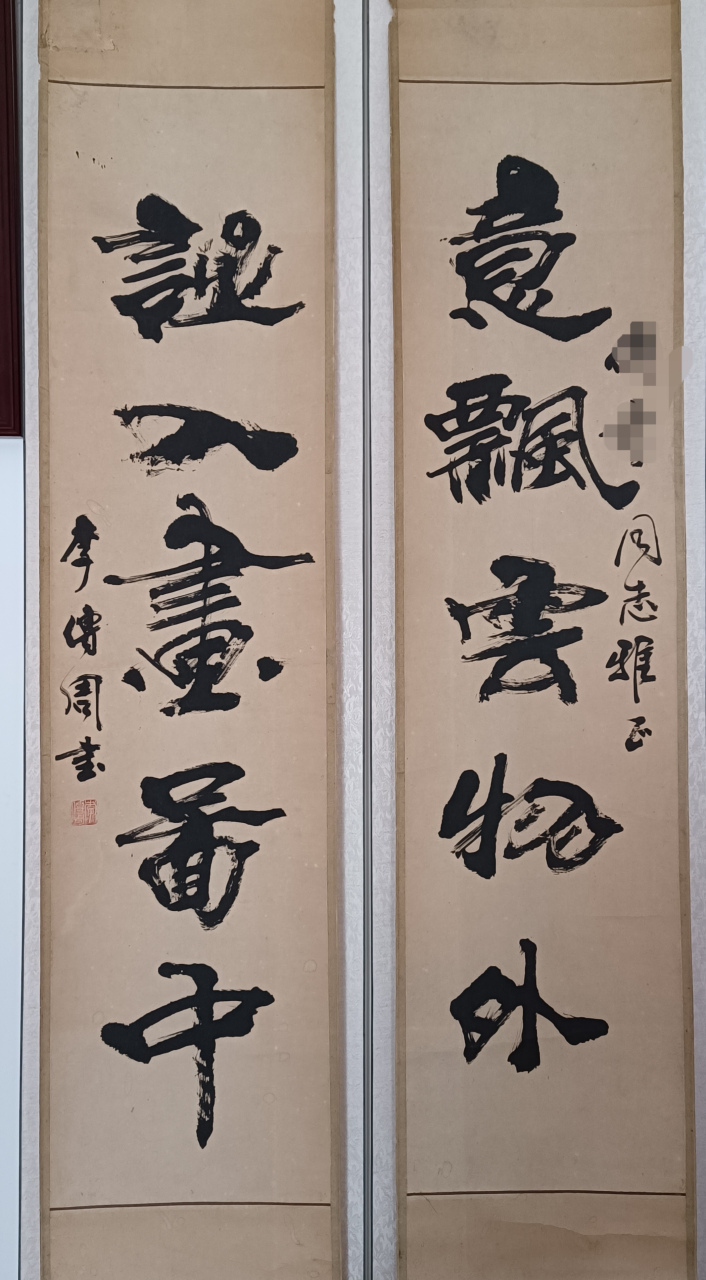 同志雅正
意飄雲物外
詩入畫圖中
李傳周書